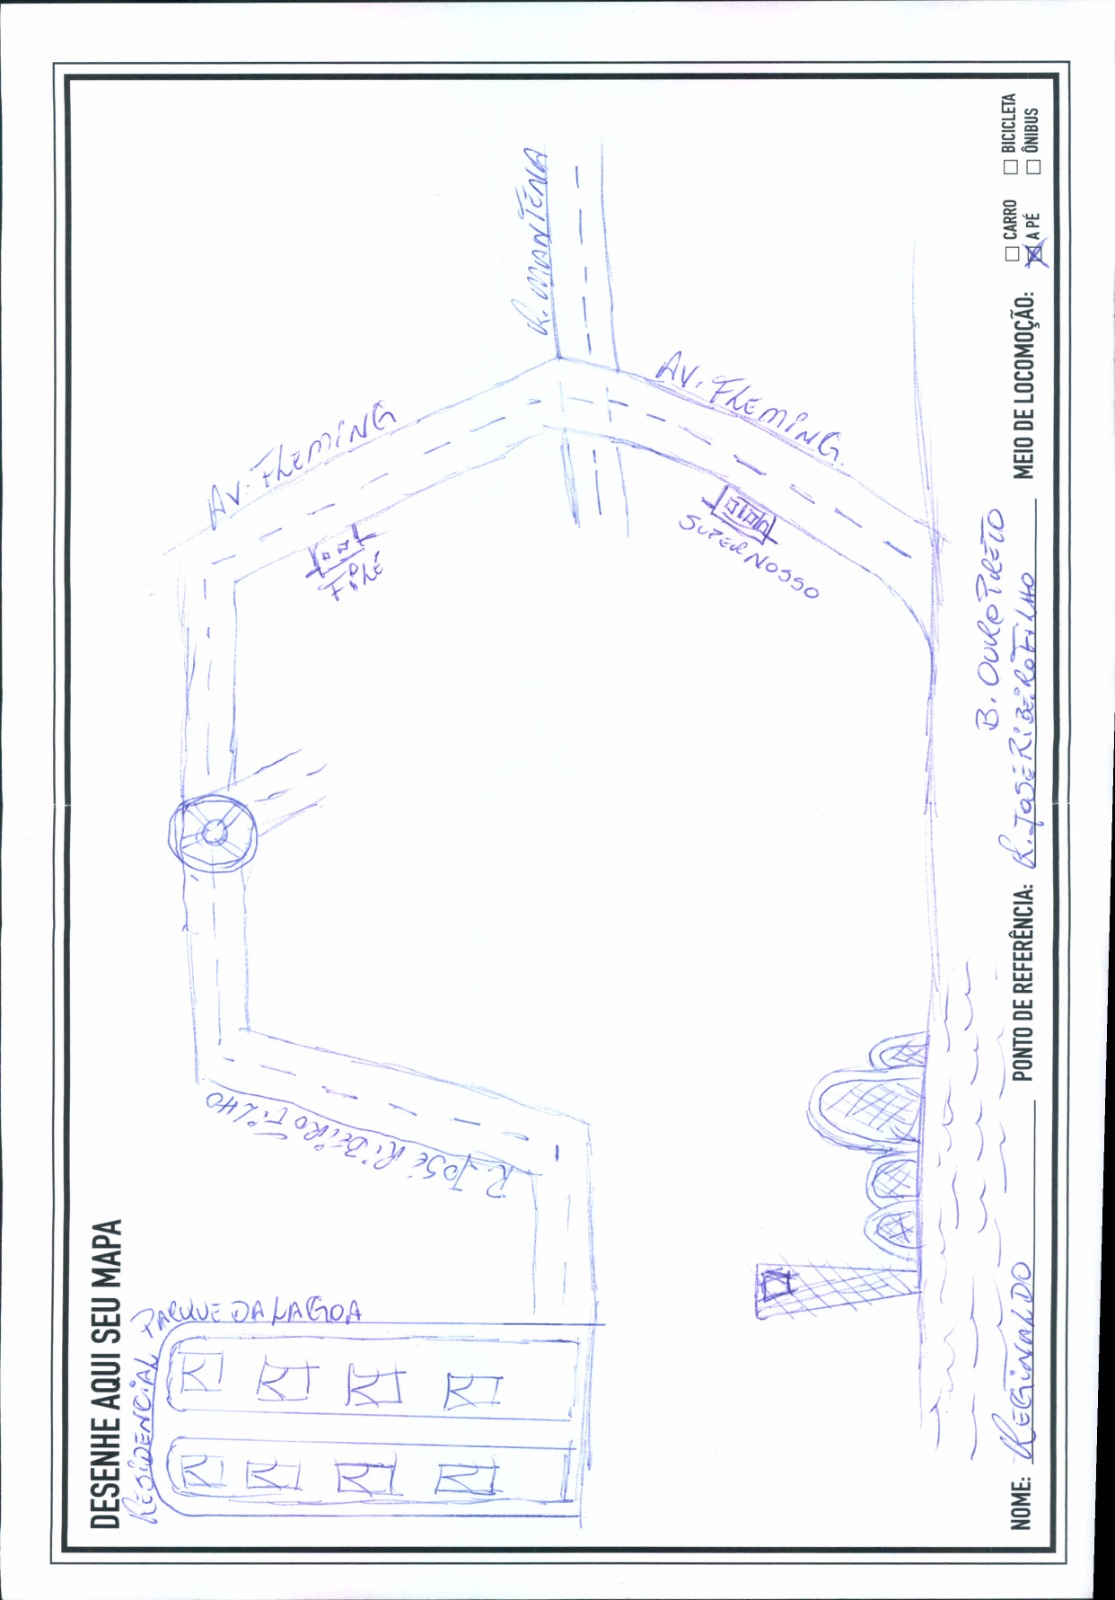 DESENHE AQUI SEU MAPA
RESIDENCIAL PARQUE DA LAGOA
R. JOSÉ RIBEIRO FILHO
AV. FLEMING
PIRÉ
R. MANTENA
AV. FLEMING.
SUPER NOSSO
B. OURO PRETO
NOME: REGINALDO PONTO DE REFERÊNCIA: R. JOSÉ RIBEIRO FILHO MEIO DE LOCOMOÇÃO: CARRO BICICLETA
A PÉ ÔNIBUS